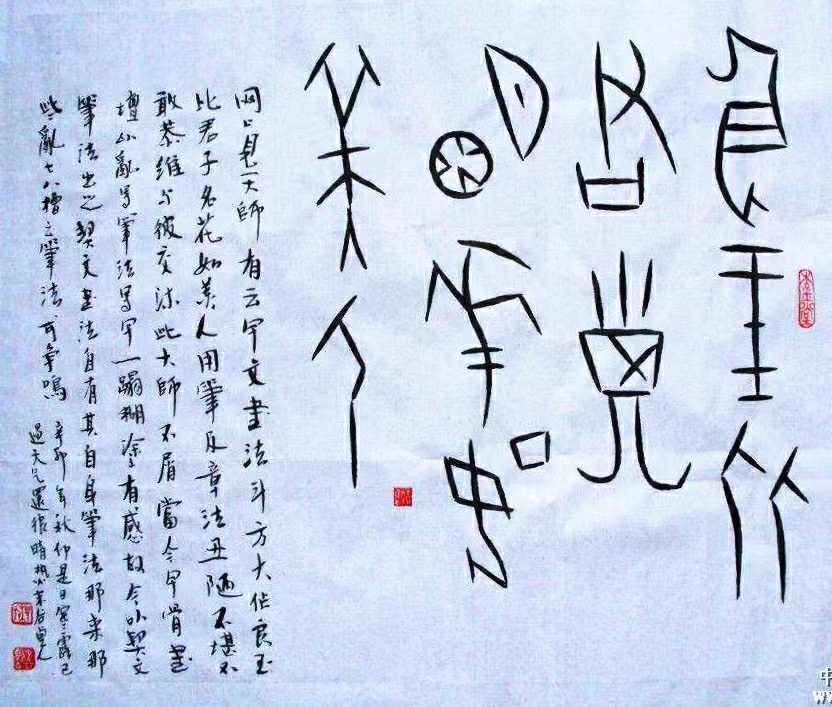 良玉比
君子
名花如
美人
网上見一大師有云甲文書法斗方大作良玉
比君子名花如美人用筆及章法丑陋不堪不
敢恭維与彼交涉此大師不屑當今甲骨書
壇以亂写筆法写甲一蹋糊塗有感故今以契文
筆法出之契文書法自有其自身筆法那来那
些亂七八糟之筆法可争鳴
辛卯年秋仰是日寒露已
過天气還很晴热